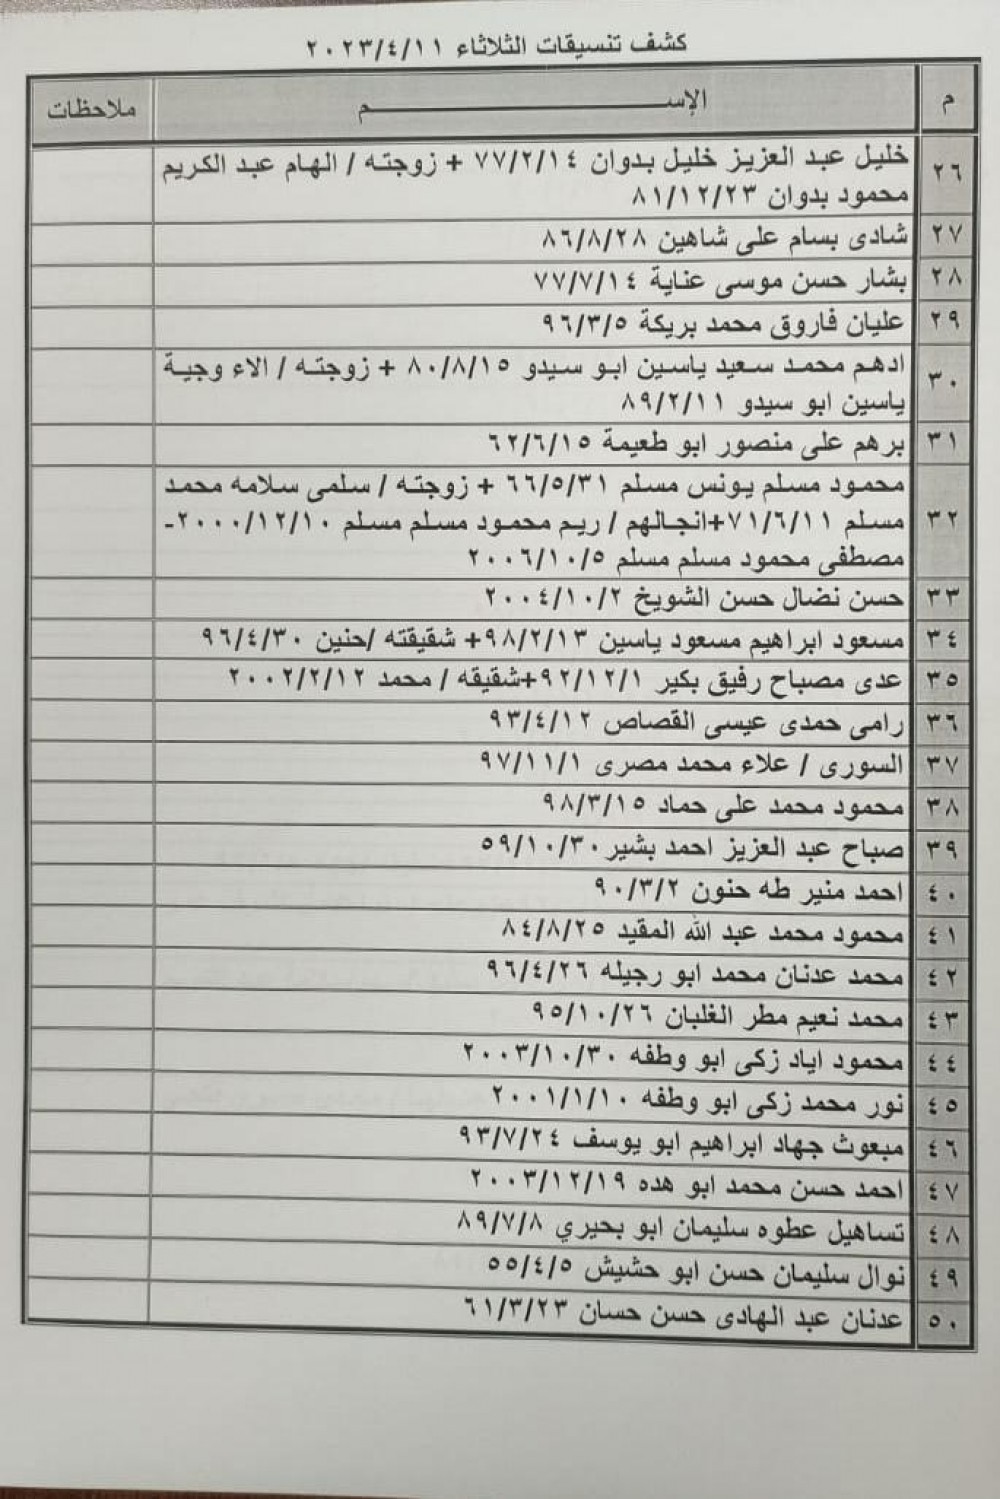 كشف تنسيقات الثلاثاء ٢٠٢٣/٤/١١
م الإســـــــــــم ملاحظات
٢٦ خليل عبد العزيز خليل بدوان ٧٧/٢/١٤ + زوجته / الهام عبد الكريم
محمود بدوان ٨١/١٢/٢٣
٢٧ شادى بسام على شاهين ٨٦/٨/٢٨
٢٨ بشار حسن موسى عناية ٧٧/٧/١٤
٢٩ عليان فاروق محمد بريكة ٩٦/٣/٥
٣٠ ادهم محمد سعيد ياسين ابو سيدو ٨٠/٨/١٥ + زوجته / الاء وجية
ياسين ابو سيدو ٨٩/٢/١١
٣١ برهم على منصور ابو طعيمة ٦٢/٦/١٥
٣٢ محمود مسلم يونس مسلم ٦٦/٥/٣١ + زوجته / سلمى سلامه محمد
مسلم ٧١/٦/١١+انجالهم / ريم محمود مسلم مسلم ٢٠٠٠/١٢/١٠-
مصطفى محمود مسلم مسلم ٢٠٠٦/١٠/٥
٣٣ حسن نضال حسن الشويخ ٢٠٠٤/١٠/٢
٣٤ مسعود ابراهيم مسعود ياسين ٩٨/٢/١٣+ شقيقته /حنين ٩٦/٤/٣٠
٣٥ عدى مصباح رفيق بكير ٩٢/١٢/١+شقيقه / محمد ٢٠٠٢/٢/١٢
٣٦ رامى حمدى عيسى القصاص ٩٣/٤/١٢
٣٧ السورى / علاء محمد مصرى ٩٧/١١/١
٣٨ محمود محمد على حماد ٩٨/٣/١٥
٣٩ صباح عبد العزيز احمد بشير٥٩/١٠/٣٠
٤٠ احمد منير طه حنون ٩٠/٣/٢
٤١ محمود محمد عبد الله المقيد ٨٤/٨/٢٥
٤٢ محمد عدنان محمد ابو رجيله ٩٦/٤/٢٦
٤٣ محمد نعيم مطر الغلبان ٩٥/١٠/٢٦
٤٤ محمود اياد زكى ابو وطفه ٢٠٠٣/١٠/٣٠
٤٥ نور محمد زكى ابو وطفه ٢٠٠١/١/١٠
٤٦ مبعوث جهاد ابراهيم ابو يوسف ٩٣/٧/٢٤
٤٧ احمد حسن محمد ابو هده ٢٠٠٣/١٢/١٩
٤٨ تساهيل عطوه سليمان ابو بحيري ٨٩/٧/٨
٤٩ نوال سليمان حسن ابو حشيش ٥٥/٤/٥
٥٠ عدنان عبد الهادى حسن حسان ٦١/٣/٢٣